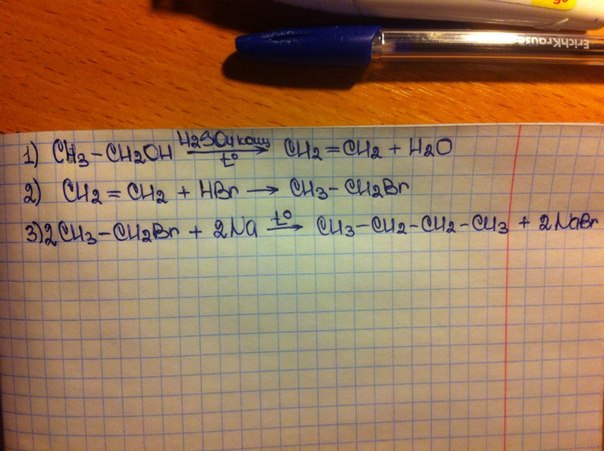 ErichKrause
1) CH3-CH2OH H2SO4 конц t° → CH2=CH2 + H2O
2) CH2=CH2 + HBr → CH3-CH2Br
3) 2CH3-CH2Br + 2Na t° → CH3-CH2-CH2-CH3 + 2NaBr